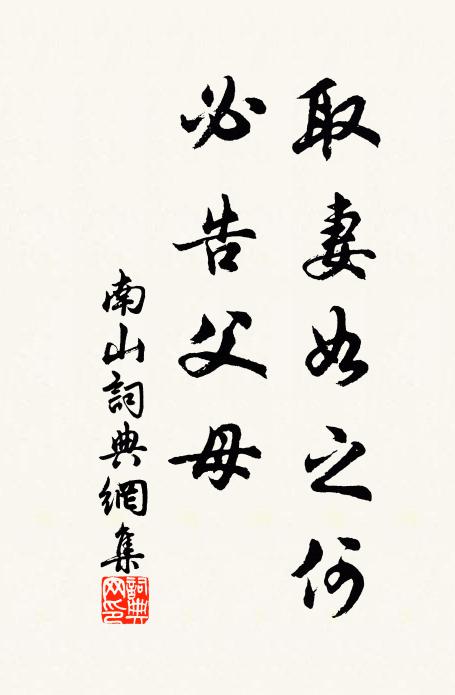 取妻如之何
必告父母
南山詞典網集
詞典网印